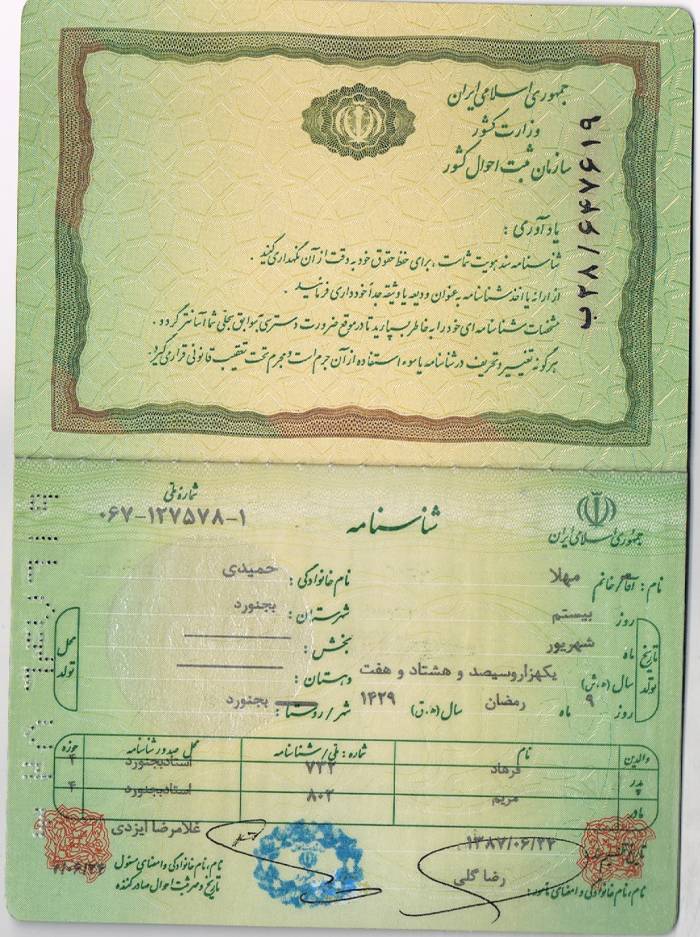 جمهوری اسلامی ایران
وزارت کشور
سازمان ثبت احوال کشور
ب۲۸/۶۴۷۶۱۹
یادآوری :
شناسنامه سند هویت شماست ، برای حفظ حقوق خود به دقت از آن نگهداری کنید .
از ارائه یا اخذ شناسنامه به عنوان ودیعه یا وثیقه جداً خودداری فرمائید .
مشخصات شناسنامه ای خود را به خاطر بسپارید تا در موقع ضرورت دسترسی به سوابق سجلی شما آسانتر گردد .
هرگونه تغییر و تحریف در شناسنامه یا سوء استفاده از آن جرم است و مجرم تحت تعقیب قانونی قرار می گیرد .
جمهوری اسلامی ایران
شناسنامه
شماره ملی
۰۶۷-۱۲۷۵۷۸-۱
نام : آقا/خانم مهلا
نام خانوادگی : حمیدی
تاریخ تولد
روز بیستم
ماه شهریور
سال (ه.ش) یکهزاروسیصد و هشتاد و هفت
روز ۹ ماه رمضان سال (ه.ق) ۱۴۲۹
محل تولد
شهرستان : بجنورد
بخش :
دهستان :
شهر / روستا : بجنورد
والدین نام شماره : ملی / شناسنامه محل صدور شناسنامه حوزه
پدر فرهاد ۷۳۲ استادبجنورد ۴
مادر مریم ۸۰۲ استادبجنورد ۴
تاریخ تنظیم سند ۱۳۸۷/۰۶/۲۴
نام، نام خانوادگی و امضای مأمور : رضا گلی
غلامرضا ایزدی
نام، نام خانوادگی و امضای مسئول
تاریخ و مهر ثبت احوال صادر کننده